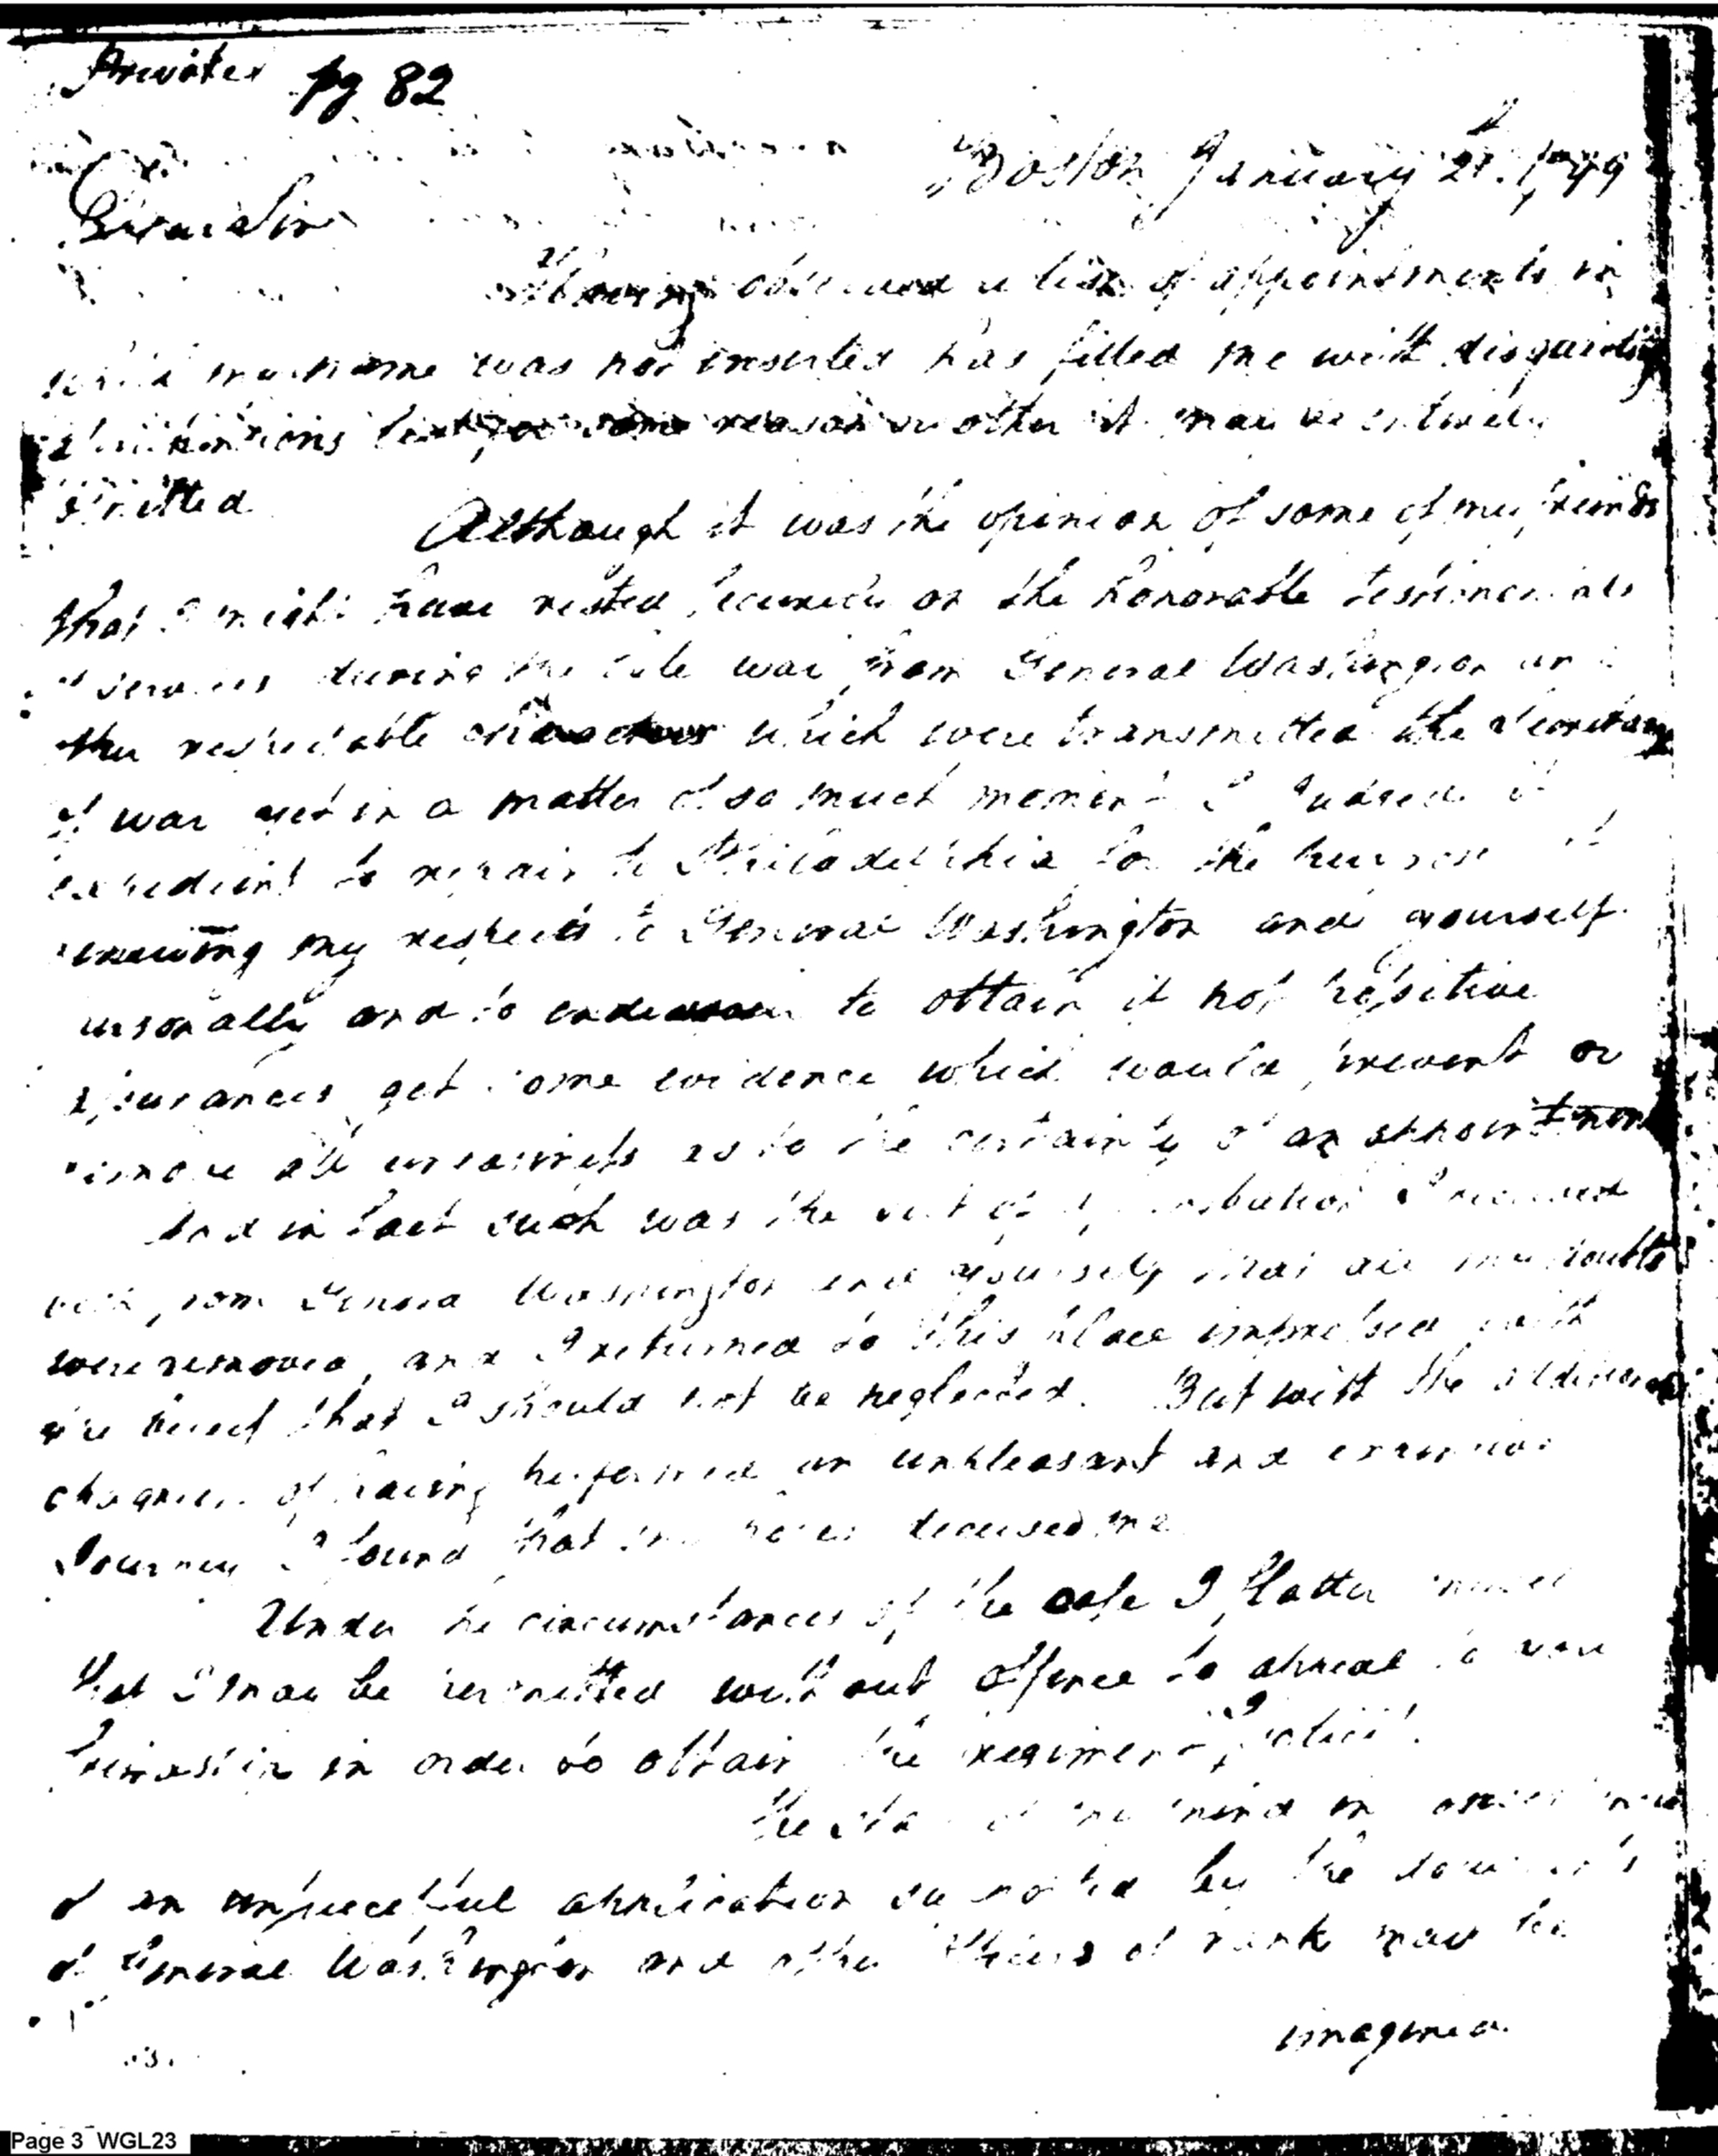 Private pg 82
Boston January 21. 1799
Dear Sir
Having observed a list of appointments in
which my name was not inserted has filled me with disquieting
for some reason or other it may be entirely
omitted
Although it was the opinion of some of my freinds
that I might have rested securely on the honorable testimonials
of services during the late war from General Washington and
other respectable characters which were transmitted the Secretary
of war yet in a matter of so much moment I judged it
expedient to repair to Philadelphia for the purpose of
renewing my respects to General Washington and yourself
personally and to endeavour to obtain if not positive
assurances get some evidence which would prevent or
remove all uneasiness as to the certainty of an appointment
And in fact such was the sort of I received
both from General Washington and yourself that all my doubts
were removed, and I returned to this place impressed with
the beleif that I should not be neglected. But with the additional
chagrin of having performed an unpleasant and
Journey I found that my hopes deceived me
Under the circumstances of the case I flatter myself
that I may be permitted without offence to appeal to your
freindship in order to obtain the regiment I solicit.
The state of my mind in
of an unsuccessful application supported by the
of General Washington and other officers of rank may be
imagined
Page 3 WGL23